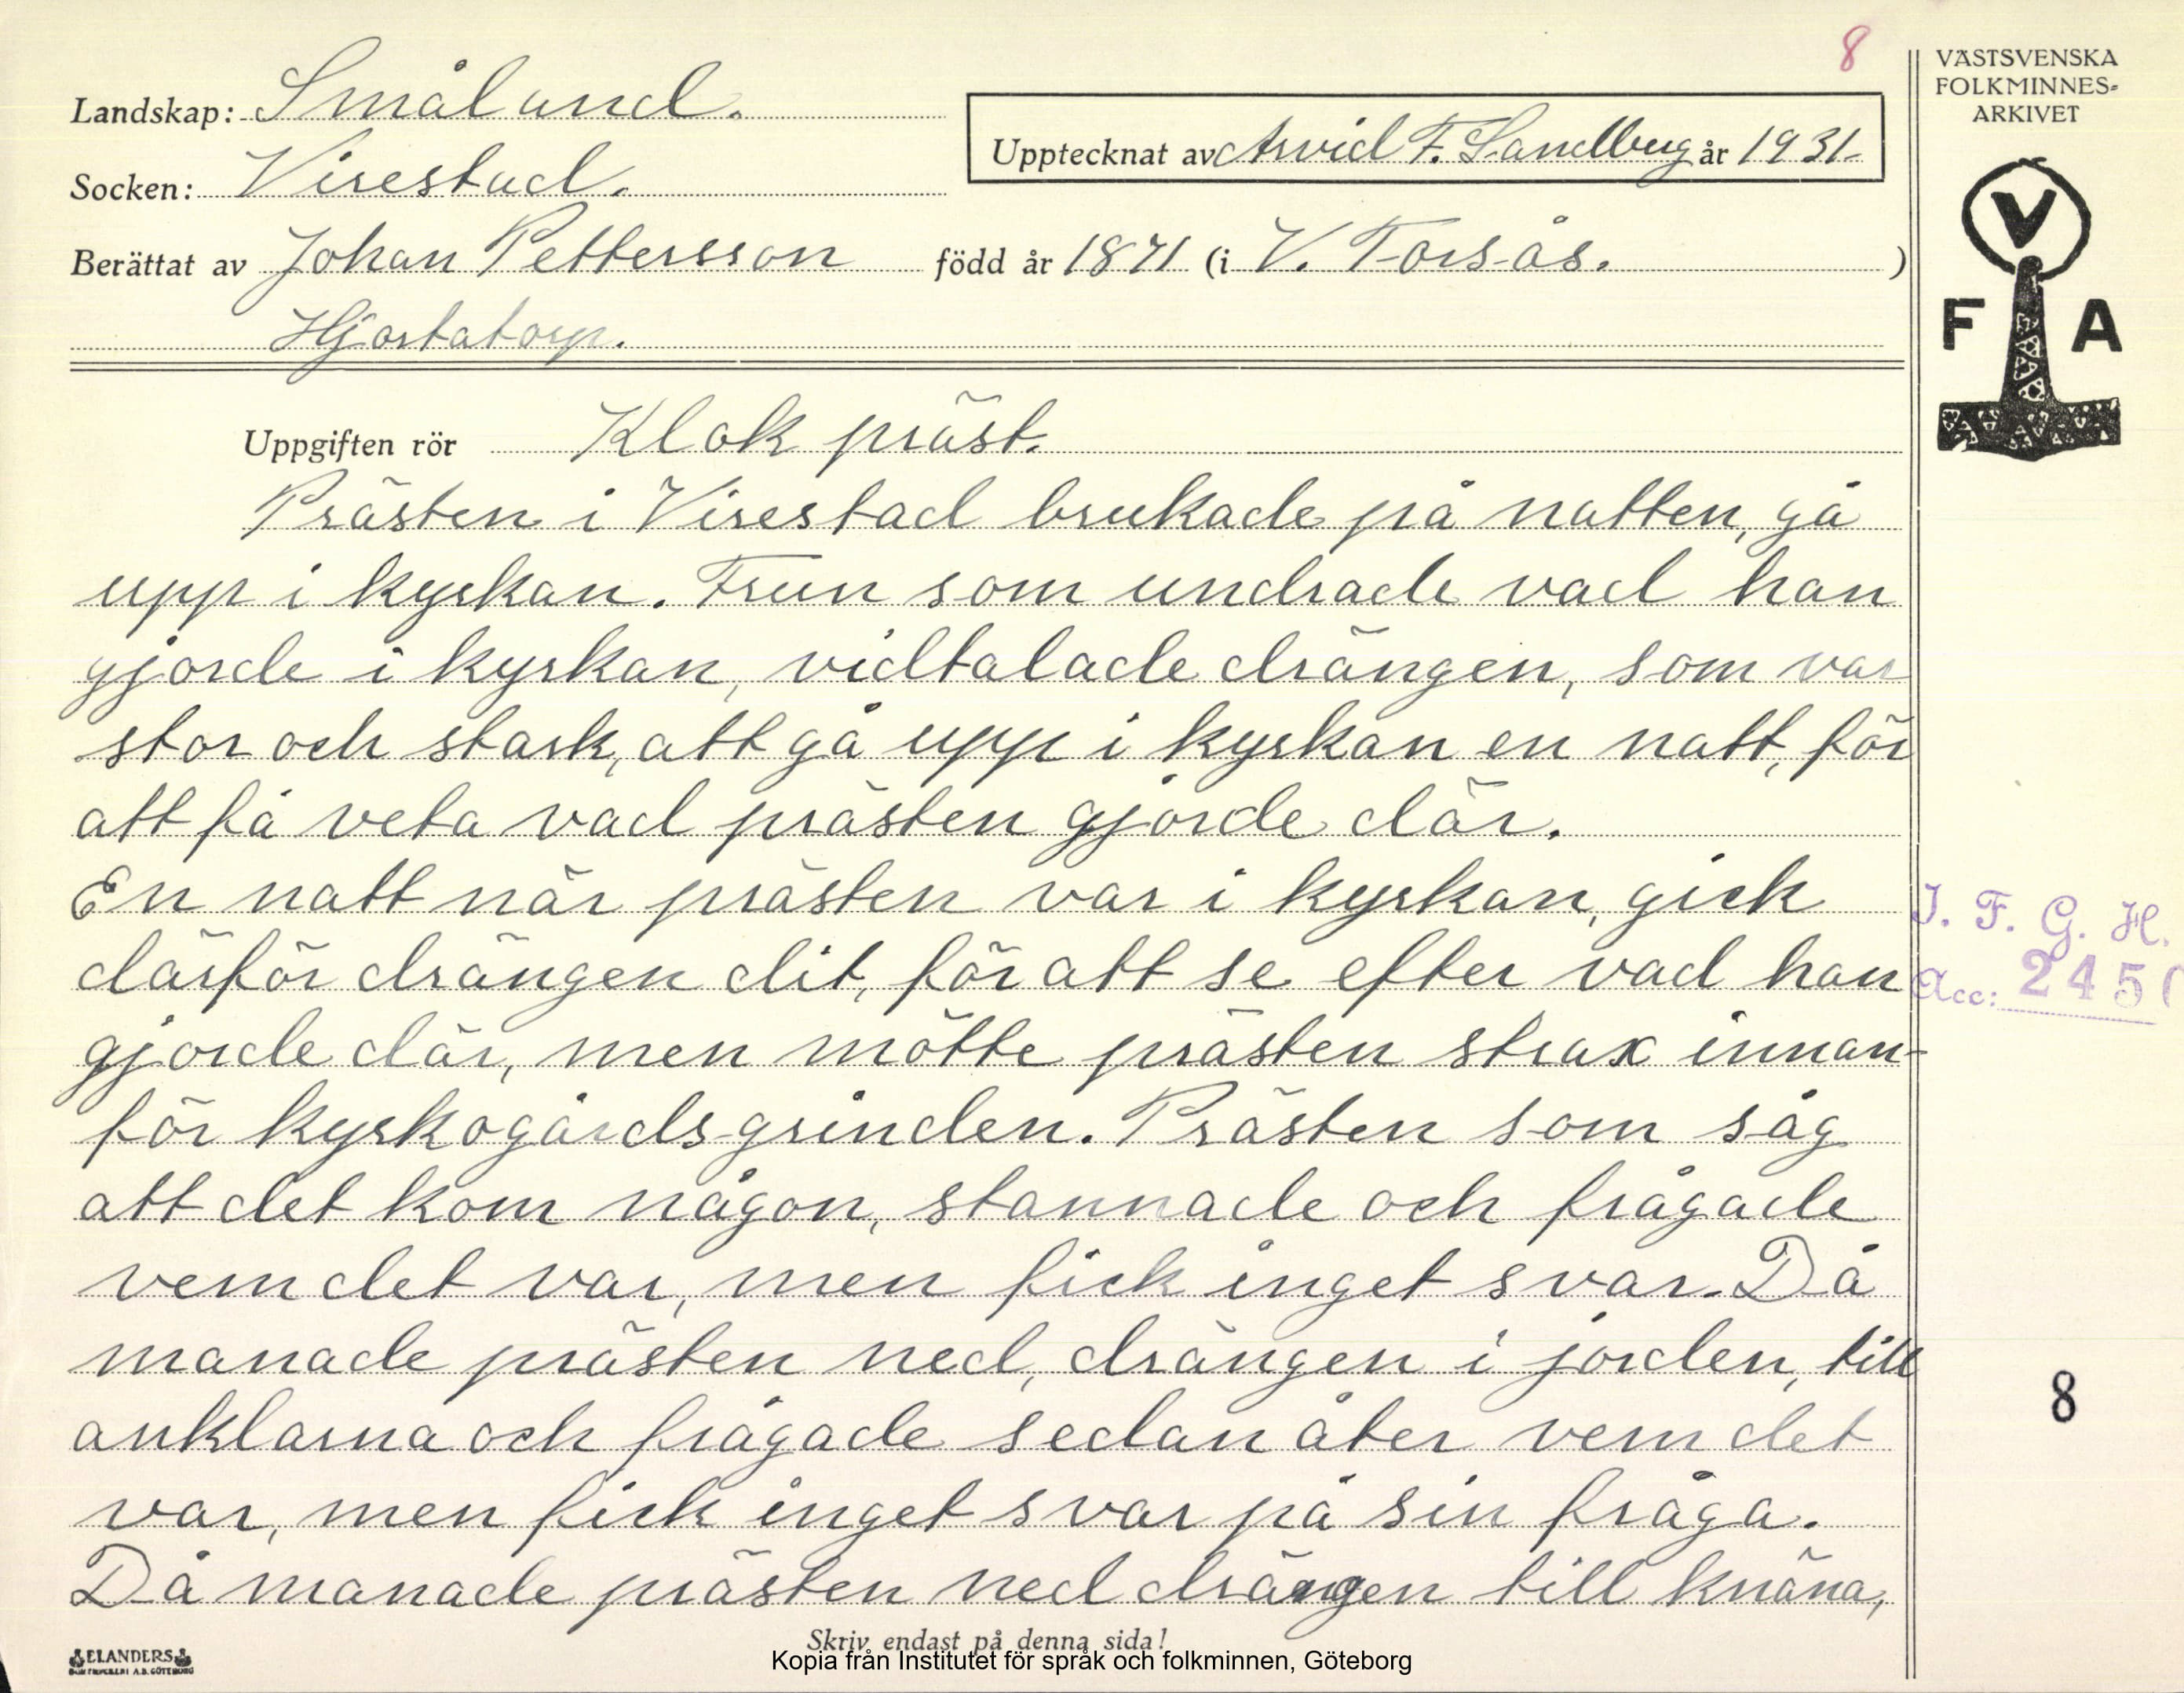 8
VÄSTSVENSKA
FOLKMINNES-
ARKIVET
Landskap: Småland.
Upptecknat av Arvid F. Sandberg år 1931.
Socken: Virestad.
Berättat av Johan Pettersson född år 1871 (i V. Torsås. )
Hjortatorp.
V
F A
Uppgiften rör Klok präst.
Prästen i Virestad brukade på natten, gå
upp i kyrkan. Frun som undrade vad han
gjorde i kyrkan, vidtalade drängen, som var
stor och stark, att gå upp i kyrkan en natt, för
att få veta vad prästen gjorde där.
En natt när prästen var i kyrkan, gick
därför drängen dit, för att se efter vad han
gjorde där, men mötte prästen strax innan-
för kyrkogårdsgrinden. Prästen som såg
att det kom någon, stannade och frågade
vem det var, men fick inget svar. Då
manade prästen ned, drängen i jorden, till
anklarna och frågade sedan åter vem det
var, men fick inget svar på sin fråga.
Då manade prästen ned drängen till knäna,
I. F. G. H.
Acc: 2450
8
Skriv endast på denna sida!
ELANDERS
BOKTRYCKERI A.B. GÖTEBORG
Kopia från Institutet för språk och folkminnen, Göteborg